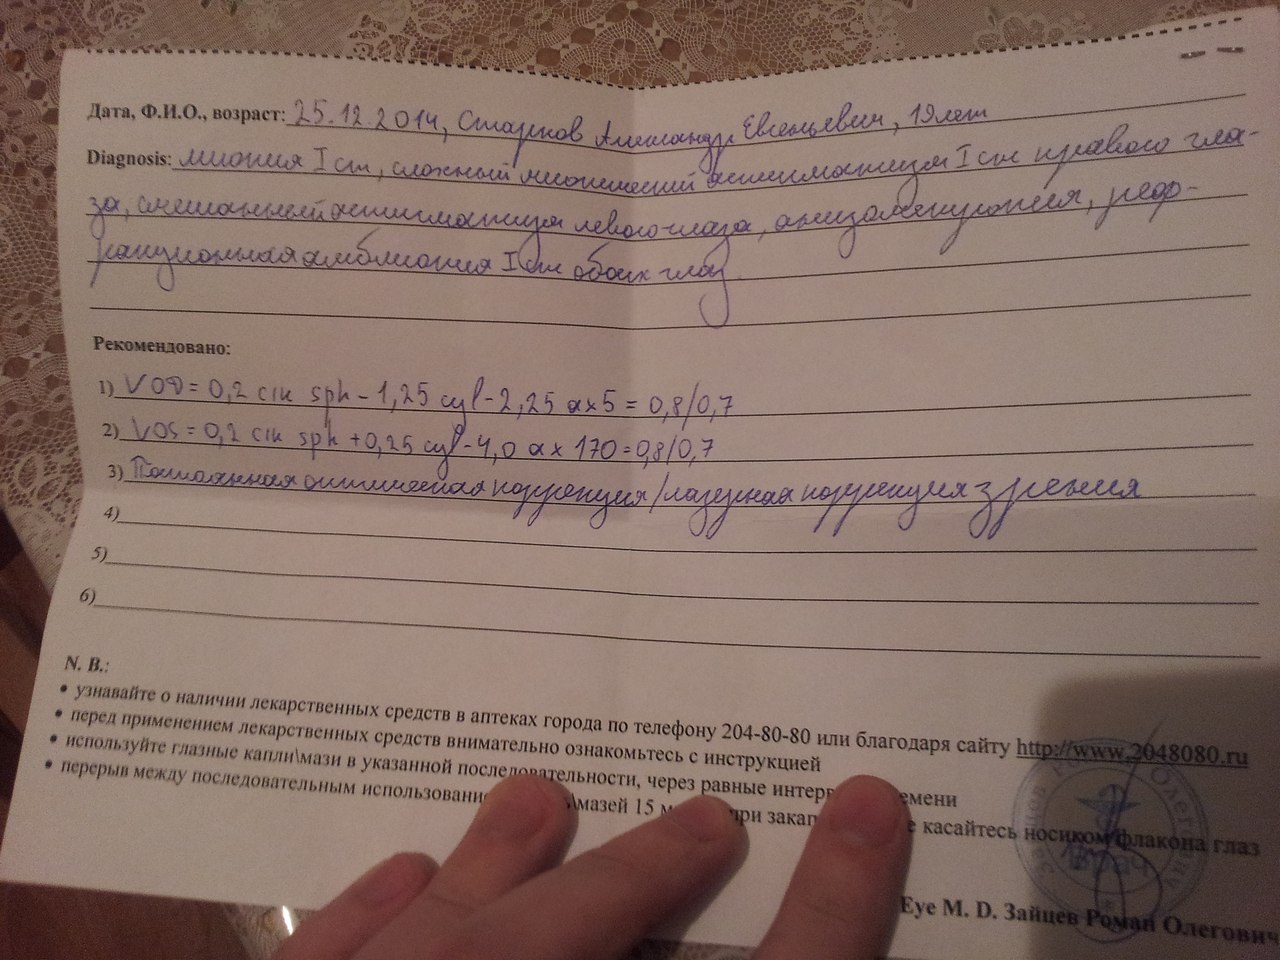 Дата, Ф.И.О., возраст: 25.12.2014, Старков Александр Евгеньевич, 19 лет
Diagnosis: миопия I ст, сложный миопический астигматизм I ст правого гла-
за, смешанный астигматизм левого глаза, анизометропия, реф-
ракционная амблиопия I ст обоих глаз
Рекомендовано:
1) VOD = 0,2 сж sph - 1,25 cyl - 2,25 ax 5 = 0,8/0,7
2) VOS = 0,2 сж sph + 0,25 cyl - 4,0 ax 170 = 0,8/0,7
3) Постоянная оптическая коррекция/лазерная коррекция зрения
4)
5)
6)
N. B.:
• узнавайте о наличии лекарственных средств в аптеках города по телефону 204-80-80 или благодаря сайту http://www.2048080.ru
• перед применением лекарственных средств внимательно ознакомьтесь с инструкцией
• используйте глазные капли\мази в указанной последовательности, через равные интер мени
• перерыв между последовательным использование \мазей 15 при закап касайтесь носиком флакона глаз
Eye M. D. Зайцев Роман Олегович